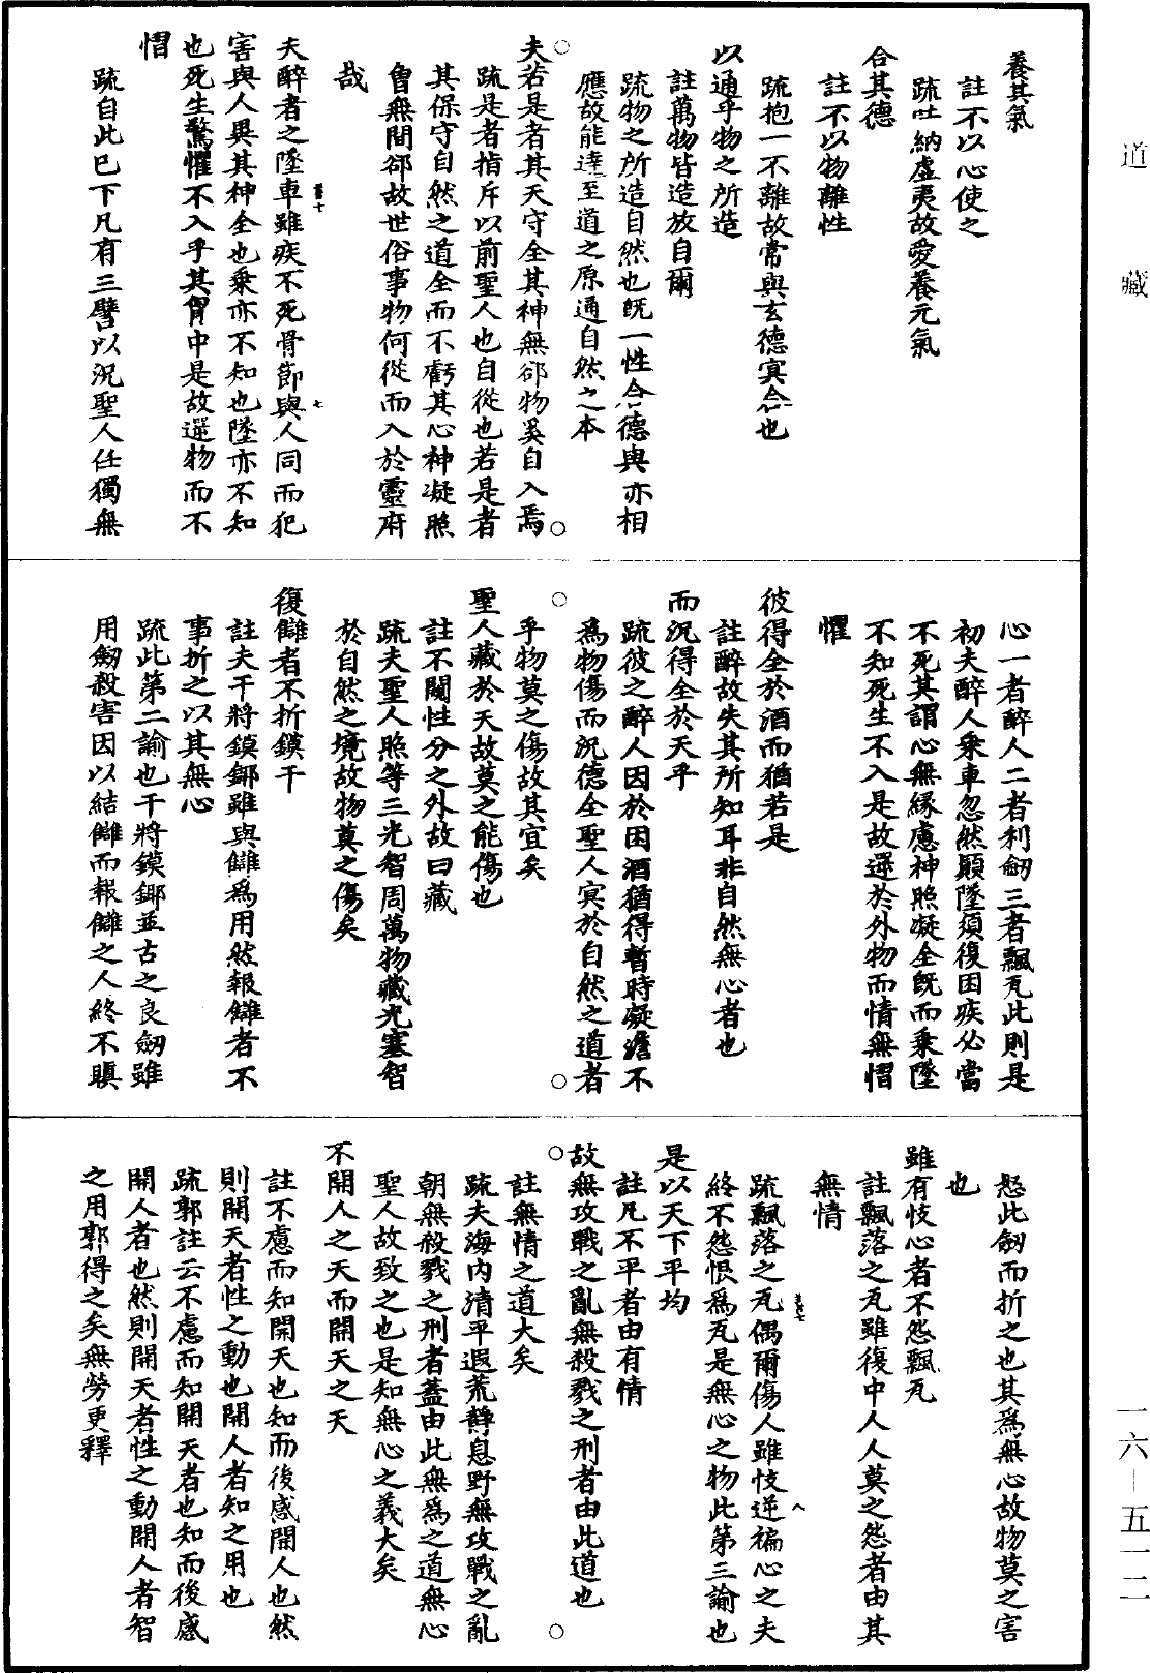 養其氣
註不以心使之
疏吐納虛夷故愛養元氣
合其德
註不以物離性
疏抱一不離故常與玄德冥合也
以通乎物之所造
註萬物皆造於自爾
疏物之所造自然也既一性合德與亦相
應故能達至道之原通自然之本
夫若是者其天守全其神無郤物奚自入焉
疏是者指斥以前聖人也自從也若是者
其保守自然之道全而不虧其心神凝照
曾無間郤故世俗事物何從而入於靈府
哉
夫醉者之墜車雖疾不死骨節與人同而犯
害與人異其神全也乘亦不知也墜亦不知
也死生驚懼不入乎其胷中是故遻物而不
慴
疏自此已下凡有三譬以況聖人任獨無
心一者醉人二者利劒三者飄瓦此則是
初夫醉人乘車忽然顛墜須復困疾必當
不死其謂心無緣慮神照凝全既而乘墜
不知死生不入是故遻於外物而情無慴
懼
彼得全於酒而猶若是
註醉故失其所知耳非自然無心者也
而況得全於天乎
疏彼之醉人因於困酒猶得暫時凝澹不
為物傷而況德全聖人冥於自然之道者
乎物莫之傷故其宜矣
聖人藏於天故莫之能傷也
註不闚性分之外故曰藏
疏夫聖人照等三光智周萬物藏光塞智
於自然之境故物莫之傷矣
復讎者不折鏌干
註夫干將鏌鋣雖與讎為用然報讎者不
事折之以其無心
疏此第二諭也干將鏌鋣並古之良劒雖
用劒殺害因以結讎而報讎之人終不瞋
怒此劒而折之也其為無心故物莫之害
也
雖有忮心者不怨飄瓦
註飄落之瓦雖復中人人莫之怨者由其
無情
疏飄落之瓦偶爾傷人雖忮逆褊心之夫
終不怨恨為瓦是無心之物此第三諭也
是以天下平均
註凡不平者由有情
故無攻戰之亂無殺戮之刑者由此道也
註無情之道大矣
疏夫海內清平遐荒靜息野無攻戰之亂
朝無殺戮之刑者蓋由此無為之道無心
聖人故致之也是知無心之義大矣
不開人之天而開天之天
註不慮而知開天也知而後感開人也然
則開天者性之動也開人者知之用也
疏郭註云不慮而知開天者也知而後感
開人者也然則開天者性之動開人者智
之用郭得之矣無勞更釋
道藏
一六—五一二